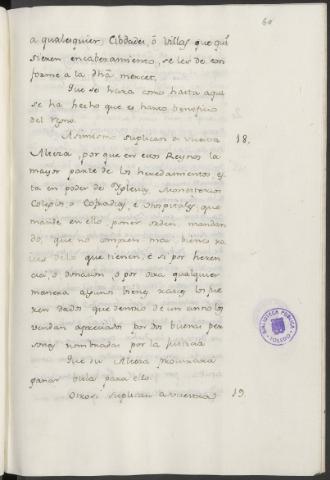 60
a qualesquier Cibdades, ó Villas que qui
sieren encabezamiento, se les dé con
forme a la dha merced.
Que se hará como hasta aqui
se ha hecho que es harto beneficio
del Reyno.
Asimismo suplican a vuestra 18.
Alteza, por que en estos Reynos la
mayor parte de los heredamientos es
ta en poder de Yglesias, Monesterios
Colegios, o Cofradias, é Hospitales, que
mande en ello poner orden, mandan
do, que no compren mas bienes ra
ices delo que tienen, é si por heren
cia, o donacion, o por otra qualquier
manera algunos bienes raices los fue
ren dados que dentro de un año los
vendan apreciados por dos buenas per
sonas nombradas por la Justicia
Que su Alteza procurará
ganar bula para ello.
Otrosi suplican a vuestra 19.
BIBLIOTECA PUBLICA
TOLEDO